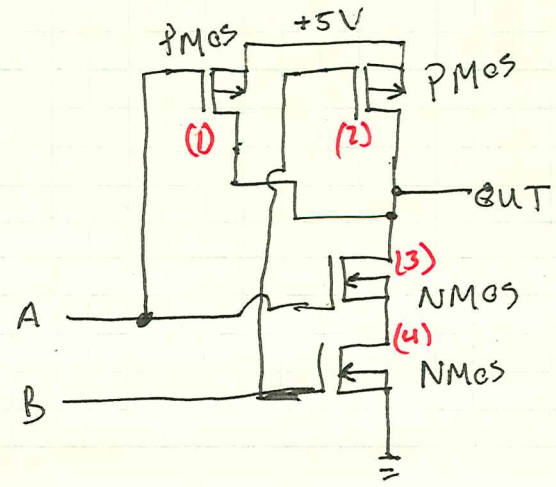 +5V
PMOS
PMOS
(1)
(2)
OUT
(3)
NMOS
A
(4)
NMOS
B